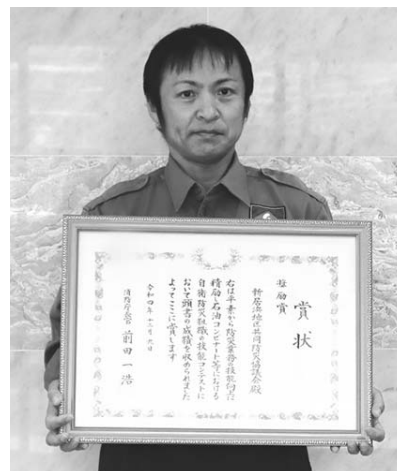 賞状
奨励賞
新居浜地区共同防災協議会殿
右は平素から防災業務の技能向上に
積励し石油コンビナート等における
自衛防災組織の技能コンテストに
おいて頭書の成績を収められました
よってここに賞します
令和四年十二月九日
消防庁長官 前田一浩